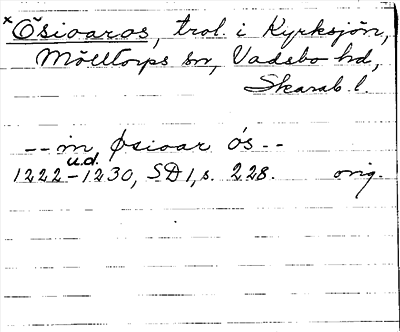 ×Ösioaros, trol. i Kyrksjön,
Mölltorps sn, Vadsbo hd,
Skarab. l.
-- in Øsioar ós --
u.d.
1222-1230, SD 1, s. 228. orig.